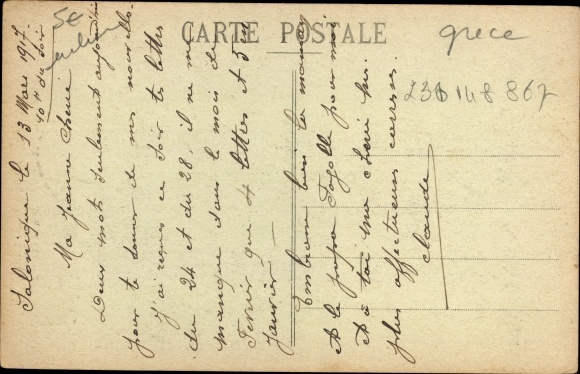 CARTE POSTALE
5€
grece
236 148 867
Salonique le 13 Mars 1917
10 h du soir
Ma Jeanne Cherie
Deux mots seulement aujourd'hui
pour te donner de mes nouvelles.
J'ai reçues ce soir tes lettres
du 24 et du 28, il ne me
manque dans le mois de
Fevrier que 4 lettres et 5 en
Janvier —
Embrasse bien ta maman
et le papa pour moi
et à toi ma cherie les
plus affectueuses caresses.
Claude